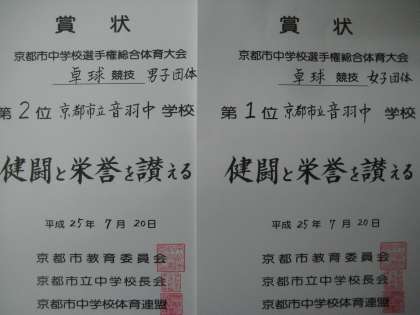 賞状
京都市中学校選手権総合体育大会
卓球 競技 男子団体
第2位 京都市立音羽中 学校
健闘と栄誉を讃える
平成25年7月20日
京都市教育委員会
京都市立中学校長会
京都市中学校体育連盟
賞状
京都市中学校選手権総合体育大会
卓球 競技 女子団体
第1位 京都市立音羽中 学校
健闘と栄誉を讃える
平成25年7月20日
京都市教育委員会
京都市立中学校長会
京都市中学校体育連盟